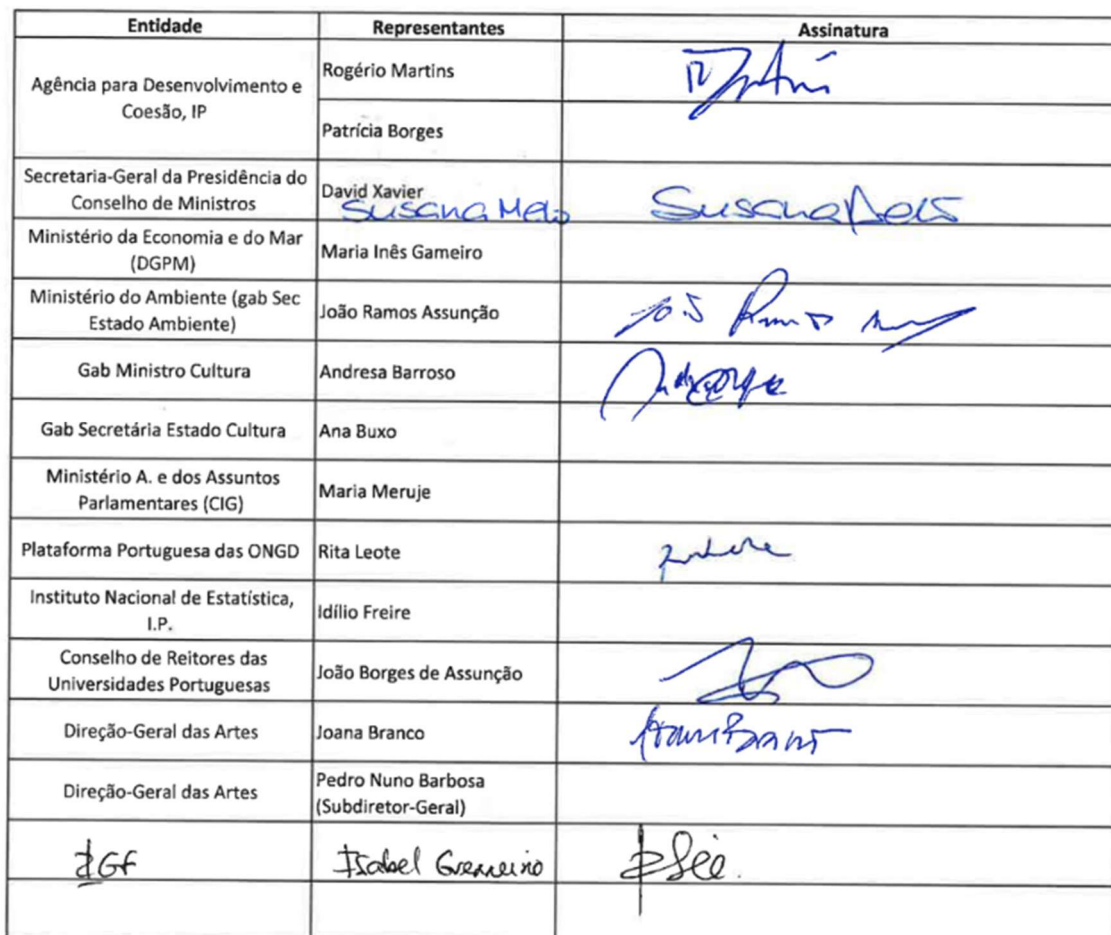 Entidade Representantes Assinatura
Agência para Desenvolvimento e
Coesão, IP
Rogério Martins
Patrícia Borges
Secretaria-Geral da Presidência do
Conselho de Ministros
David Xavier
Susana Melo Susana Melo
Ministério da Economia e do Mar
(DGPM)
Maria Inês Gameiro
Ministério do Ambiente (gab Sec
Estado Ambiente)
João Ramos Assunção
Gab Ministro Cultura Andresa Barroso
Gab Secretária Estado Cultura Ana Buxo
Ministério A. e dos Assuntos
Parlamentares (CIG)
Maria Meruje
Plataforma Portuguesa das ONGD Rita Leote
Instituto Nacional de Estatística,
I.P.
Idílio Freire
Conselho de Reitores das
Universidades Portuguesas
João Borges de Assunção
Direção-Geral das Artes Joana Branco
Direção-Geral das Artes
Pedro Nuno Barbosa
(Subdiretor-Geral)
IGF Isabel Guerreiro